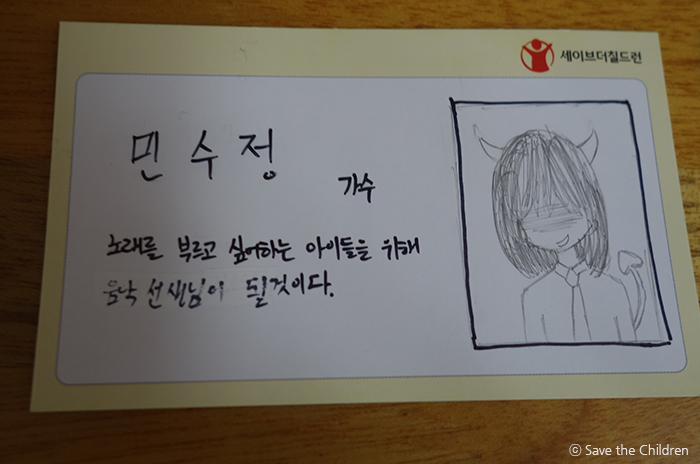 세이브더칠드런
민수정
가수
노래를 부르고 싶어하는 아이들을 위해
음악 선생님이 될것이다.
ⓒ Save the Children